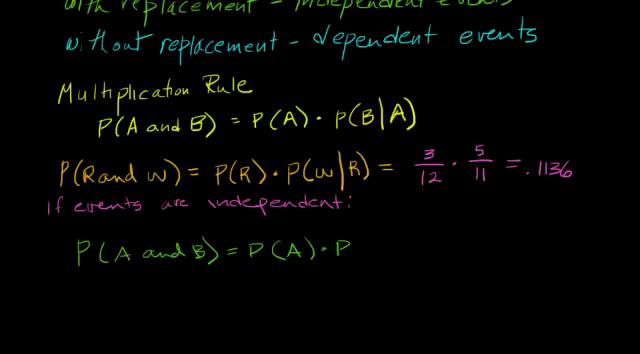 with replacement - independent events
without replacement - dependent events
Multiplication Rule
P(A and B) = P(A) · P(B|A)
P(R and W) = P(R) · P(W|R) = 3/12 · 5/11 = .1136
If events are independent:
P(A and B) = P(A) · P